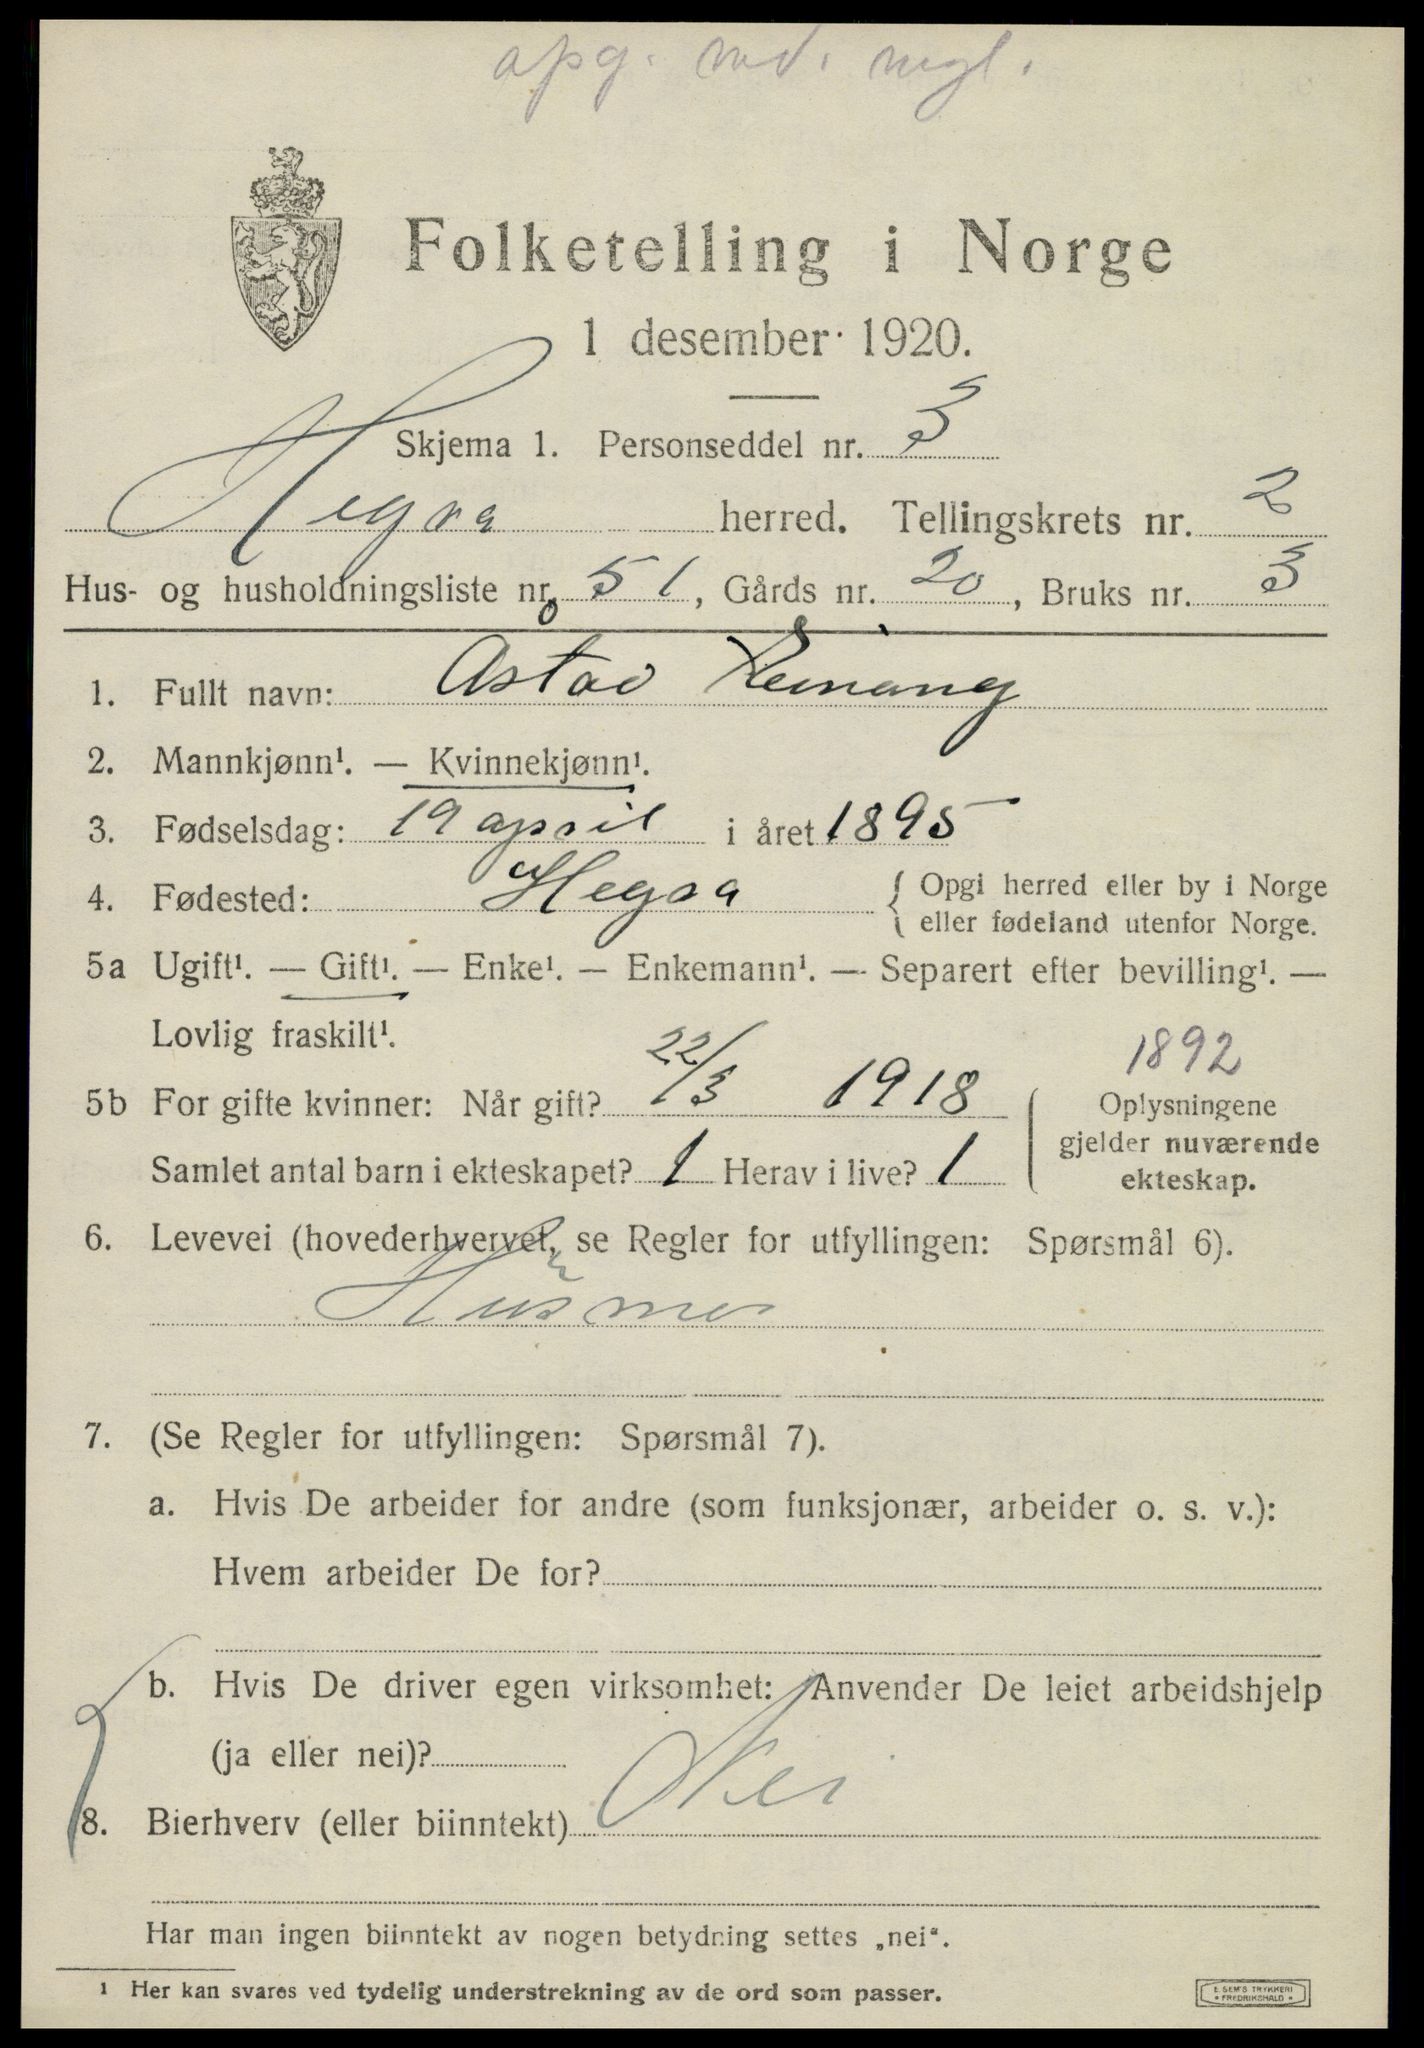 opg. md. megl.
Folketelling i Norge
1 desember 1920.
Skjema 1. Personseddel nr. 3
Hegra herred. Tellingskrets nr. 2
Hus- og husholdningsliste nr. 51, Gårds nr. 20, Bruks nr. 3
1. Fullt navn: Åstad
2. Mannkjønn¹. — Kvinnekjønn¹.
3. Fødselsdag: 19 april i året 1895
4. Fødested: Hegra { Opgi herred eller by i Norge
eller fødeland utenfor Norge.
5a Ugift¹. — Gift¹. — Enke¹. — Enkemann¹. — Separert efter bevilling¹. —
Lovlig fraskilt¹.
1892
5b For gifte kvinner: Når gift? 22/3 1918
Samlet antal barn i ekteskapet? 1 Herav i live? 1
Oplysningene
gjelder nuværende
ekteskap.
6. Levevei (hovederhvervet, se Regler for utfyllingen: Spørsmål 6).
Husmor
7. (Se Regler for utfyllingen: Spørsmål 7).
a. Hvis De arbeider for andre (som funksjonær, arbeider o. s. v.):
Hvem arbeider De for?
b. Hvis De driver egen virksomhet: Anvender De leiet arbeidshjelp
(ja eller nei)?
8. Bierhverv (eller biinntekt) Nei
Har man ingen biinntekt av nogen betydning settes „nei“.
1 Her kan svares ved tydelig understrekning av de ord som passer.
E. SEM'S TRYKKERI
• FREDRIKSHALD •